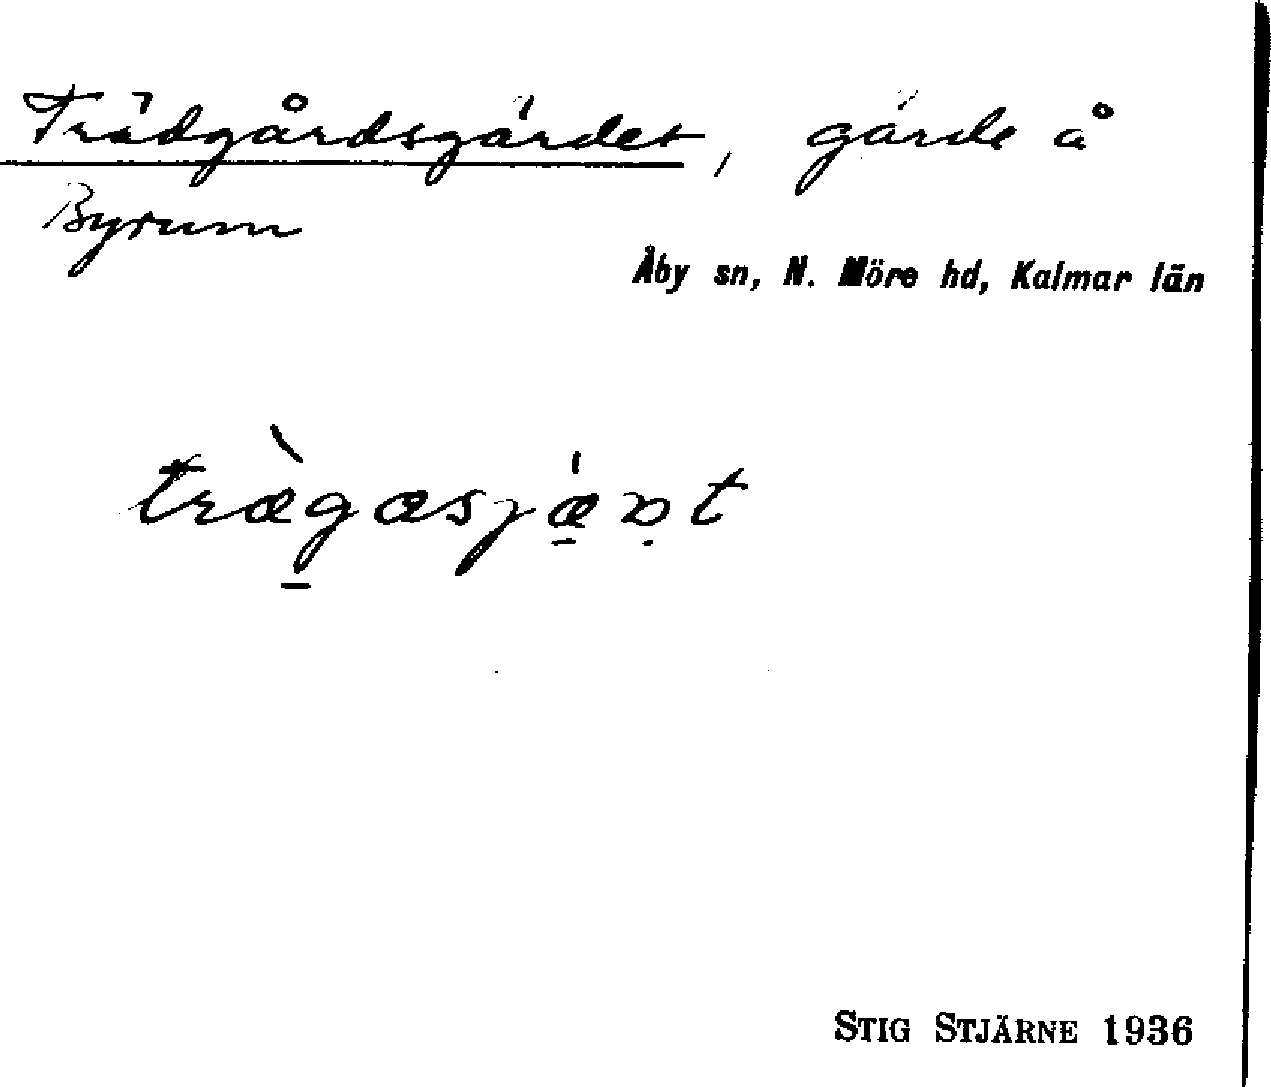 Trädgårdsgärdet, gärde å
Byrum
Åby sn, N. Möre hd, Kalmar län
STIG STJÄRNE 1936